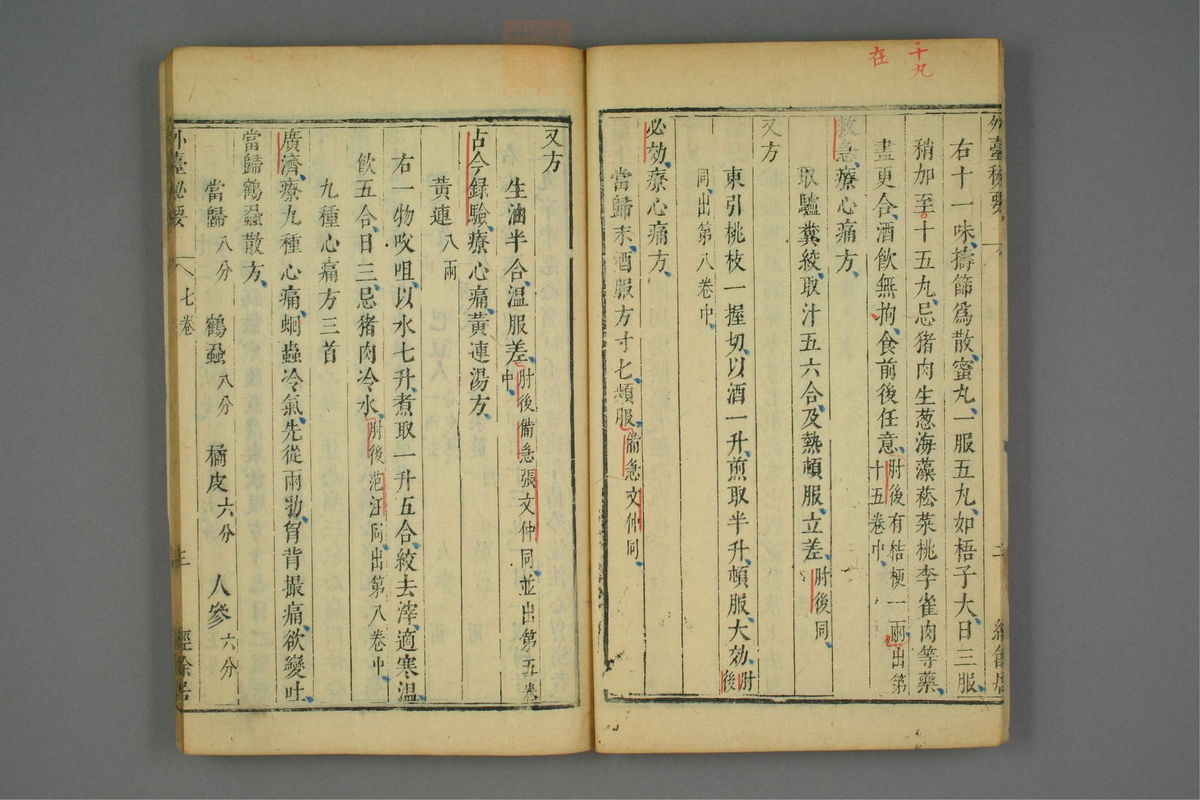 十丸
在
外臺秘要
右十一味擣篩爲散蜜丸一服五丸如梧子大日三服
稍加至十五丸忌猪肉生葱海藻菘菜桃李雀肉等藥
盡更合酒飲無拘食前後任意肘後有桔梗一兩出第
十五卷中
救急療心痛方
取驢糞絞取汁五六合及熱頓服立差肘後同
又方
東引桃枝一握切以酒一升煎取半升頓服大効肘後
同出第八卷中
必効療心痛方
當歸末酒服方寸匕頻服備急文仲同
又方
生油半合温服差肘後備急張文仲同並出第五卷
中
古今録驗療心痛黄連湯方
黄連八兩
右一物㕮咀以水七升煮取一升五合絞去滓適寒温
飲五合日三忌猪肉冷水肘後范汪同出第八卷中
九種心痛方三首
廣濟療九種心痛蛔蟲冷氣先從兩肋胷背撮痛欲變吐
當歸鶴蝨散方
當歸八分 鶴蝨八分 橘皮六分 人參六分
外臺秘要 七卷 三 經餘居